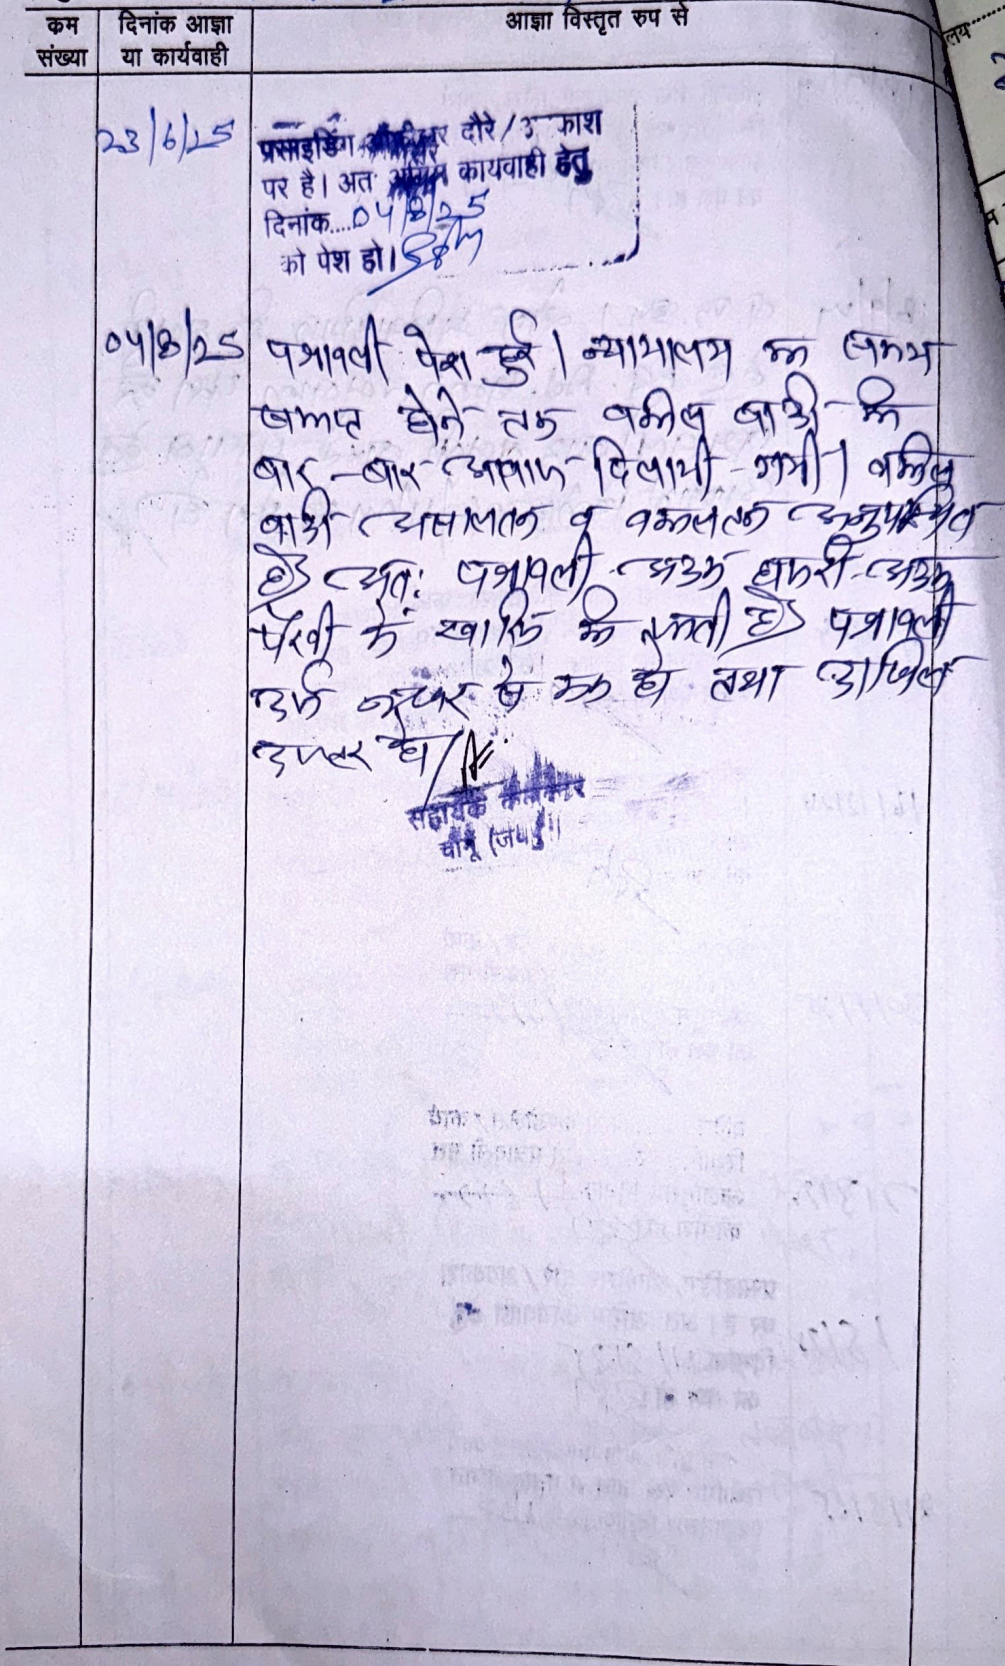 कम संख्या
दिनांक आज्ञा या कार्यवाही
आज्ञा विस्तृत रुप से
23/6/25
प्रसाइडिंग दौरे / काश
पर है। अत कायवाही हेतु
दिनांक....04/8/25
को पेश हो।
04/8/25
पत्रावली पेश हुई। न्यायालय का समय
समाप्त होने तक वकील वादी को
बार-बार आवाज दिलायी गयी। वकील
वादी असालतन व वकालतन अनुपस्थित
है अतः पत्रावली अदम हाजरी अदम
पैरवी में खारिज की जाती है पत्रावली
दर्ज नम्बर से कम हो तथा दाखिल
दफ्तर हो/
सहायक कलेक्टर
चौमू (जयपुर)